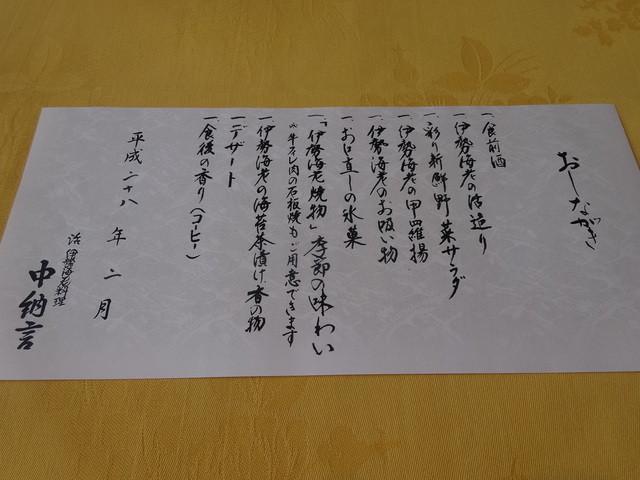 おしながき
一、食前酒
一、伊勢海老の活造り
一、彩り新鮮野菜サラダ
一、伊勢海老の甲羅揚
一、伊勢海老のお吸い物
一、お口直しの氷菓
一、「伊勢海老焼物」季節の味わい
※牛ヒレ肉の石板焼もご用意できます
一、伊勢海老の海苔茶漬け 香の物
一、デザート
一、食後の香り(コーヒー)
平成二十八年二月
活伊勢海老料理
中納言